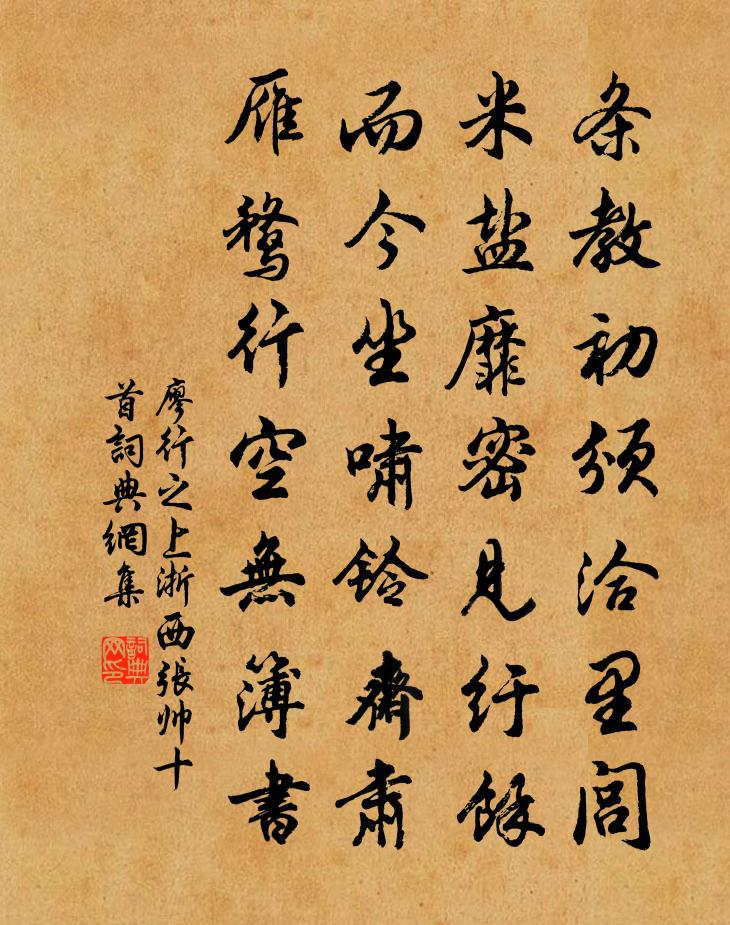 条教初颁洽里闾
米盐靡密见纡馀
而今坐啸铃斋肃
雁鹜行空無簿書
廖行之上浙西張帅十
首詞典網集
詞典网印